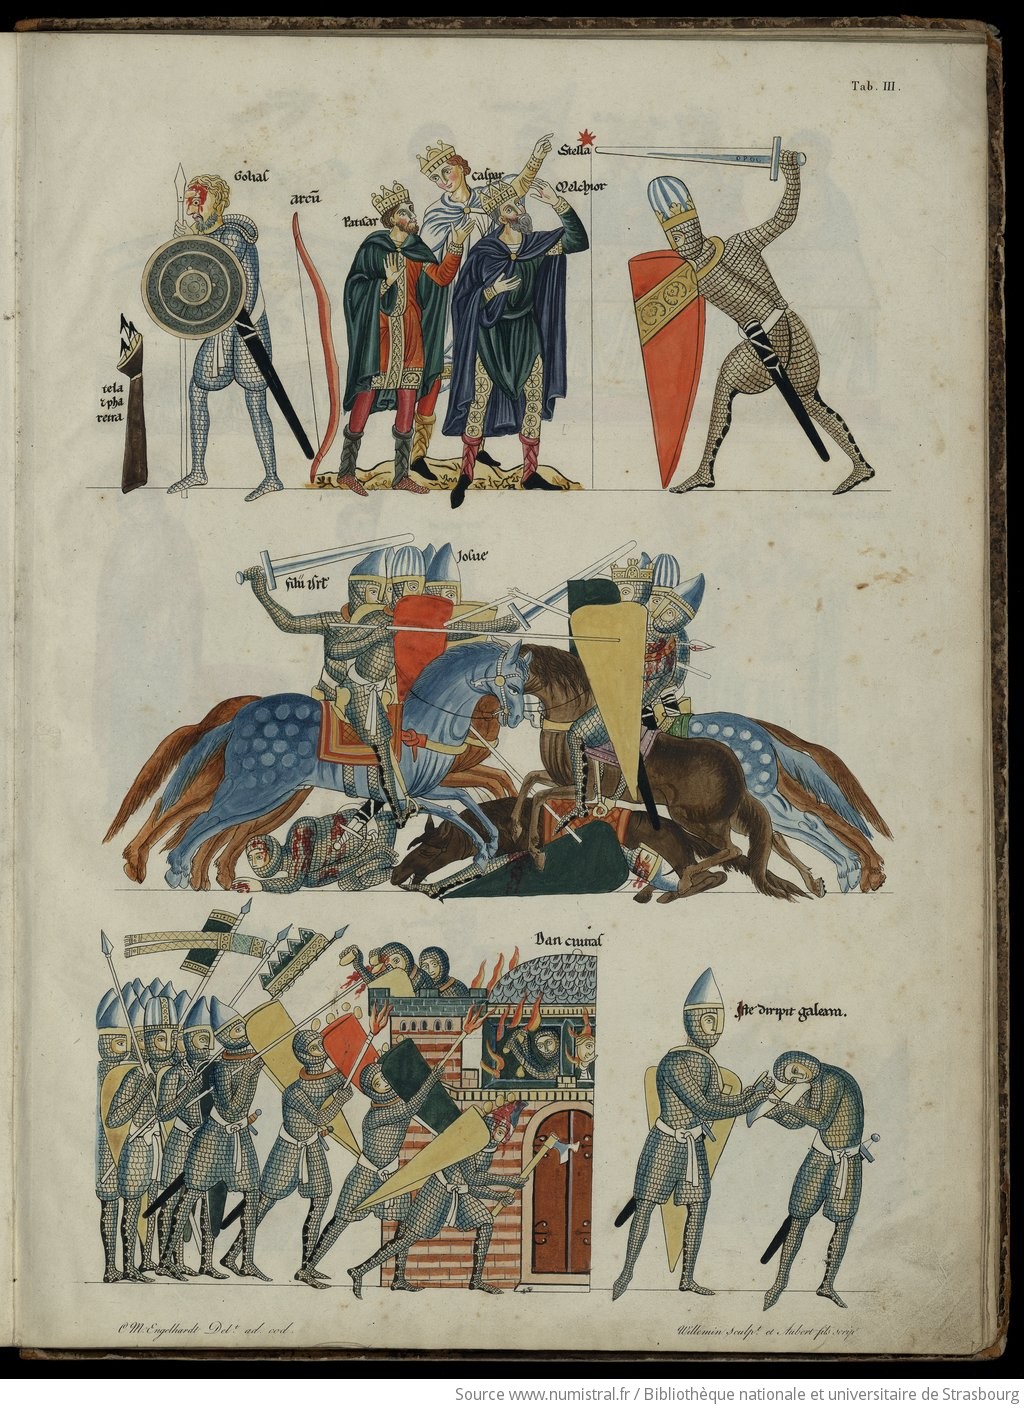 Tab. III.
Golias
arcū
Patisar
Caspar
Stella
Melchior
tela
⁊ pha
retra
filii isrl
Iosue
Dan civitas
Iste diripit galeam.
C. M. Engelhardt Del.t ad. cod.
Willemin sculp.t et Aubert fils scrip
Source www.numistral.fr / Bibliothèque nationale et universitaire de Strasbourg